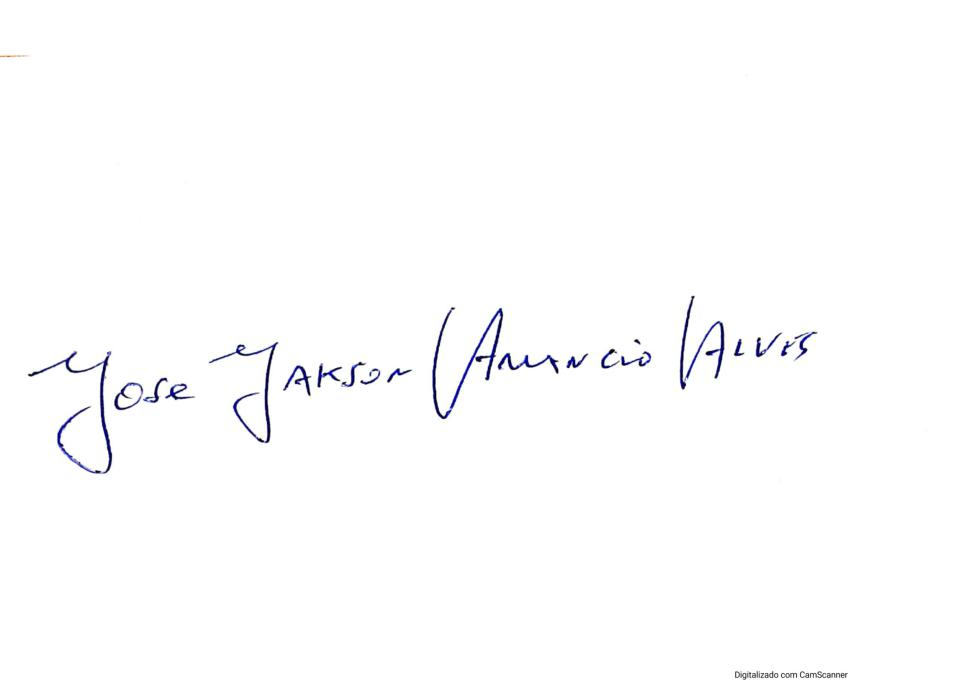 Jose Jakson Amancio Alves
Digitalizado com CamScanner